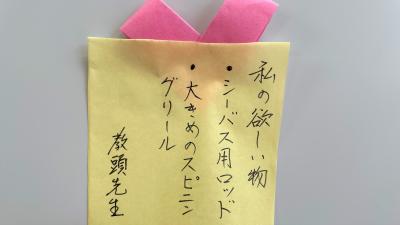 私の欲しい物
・シーバス用ロッド
・大きめのスピニン
グリール
教頭先生